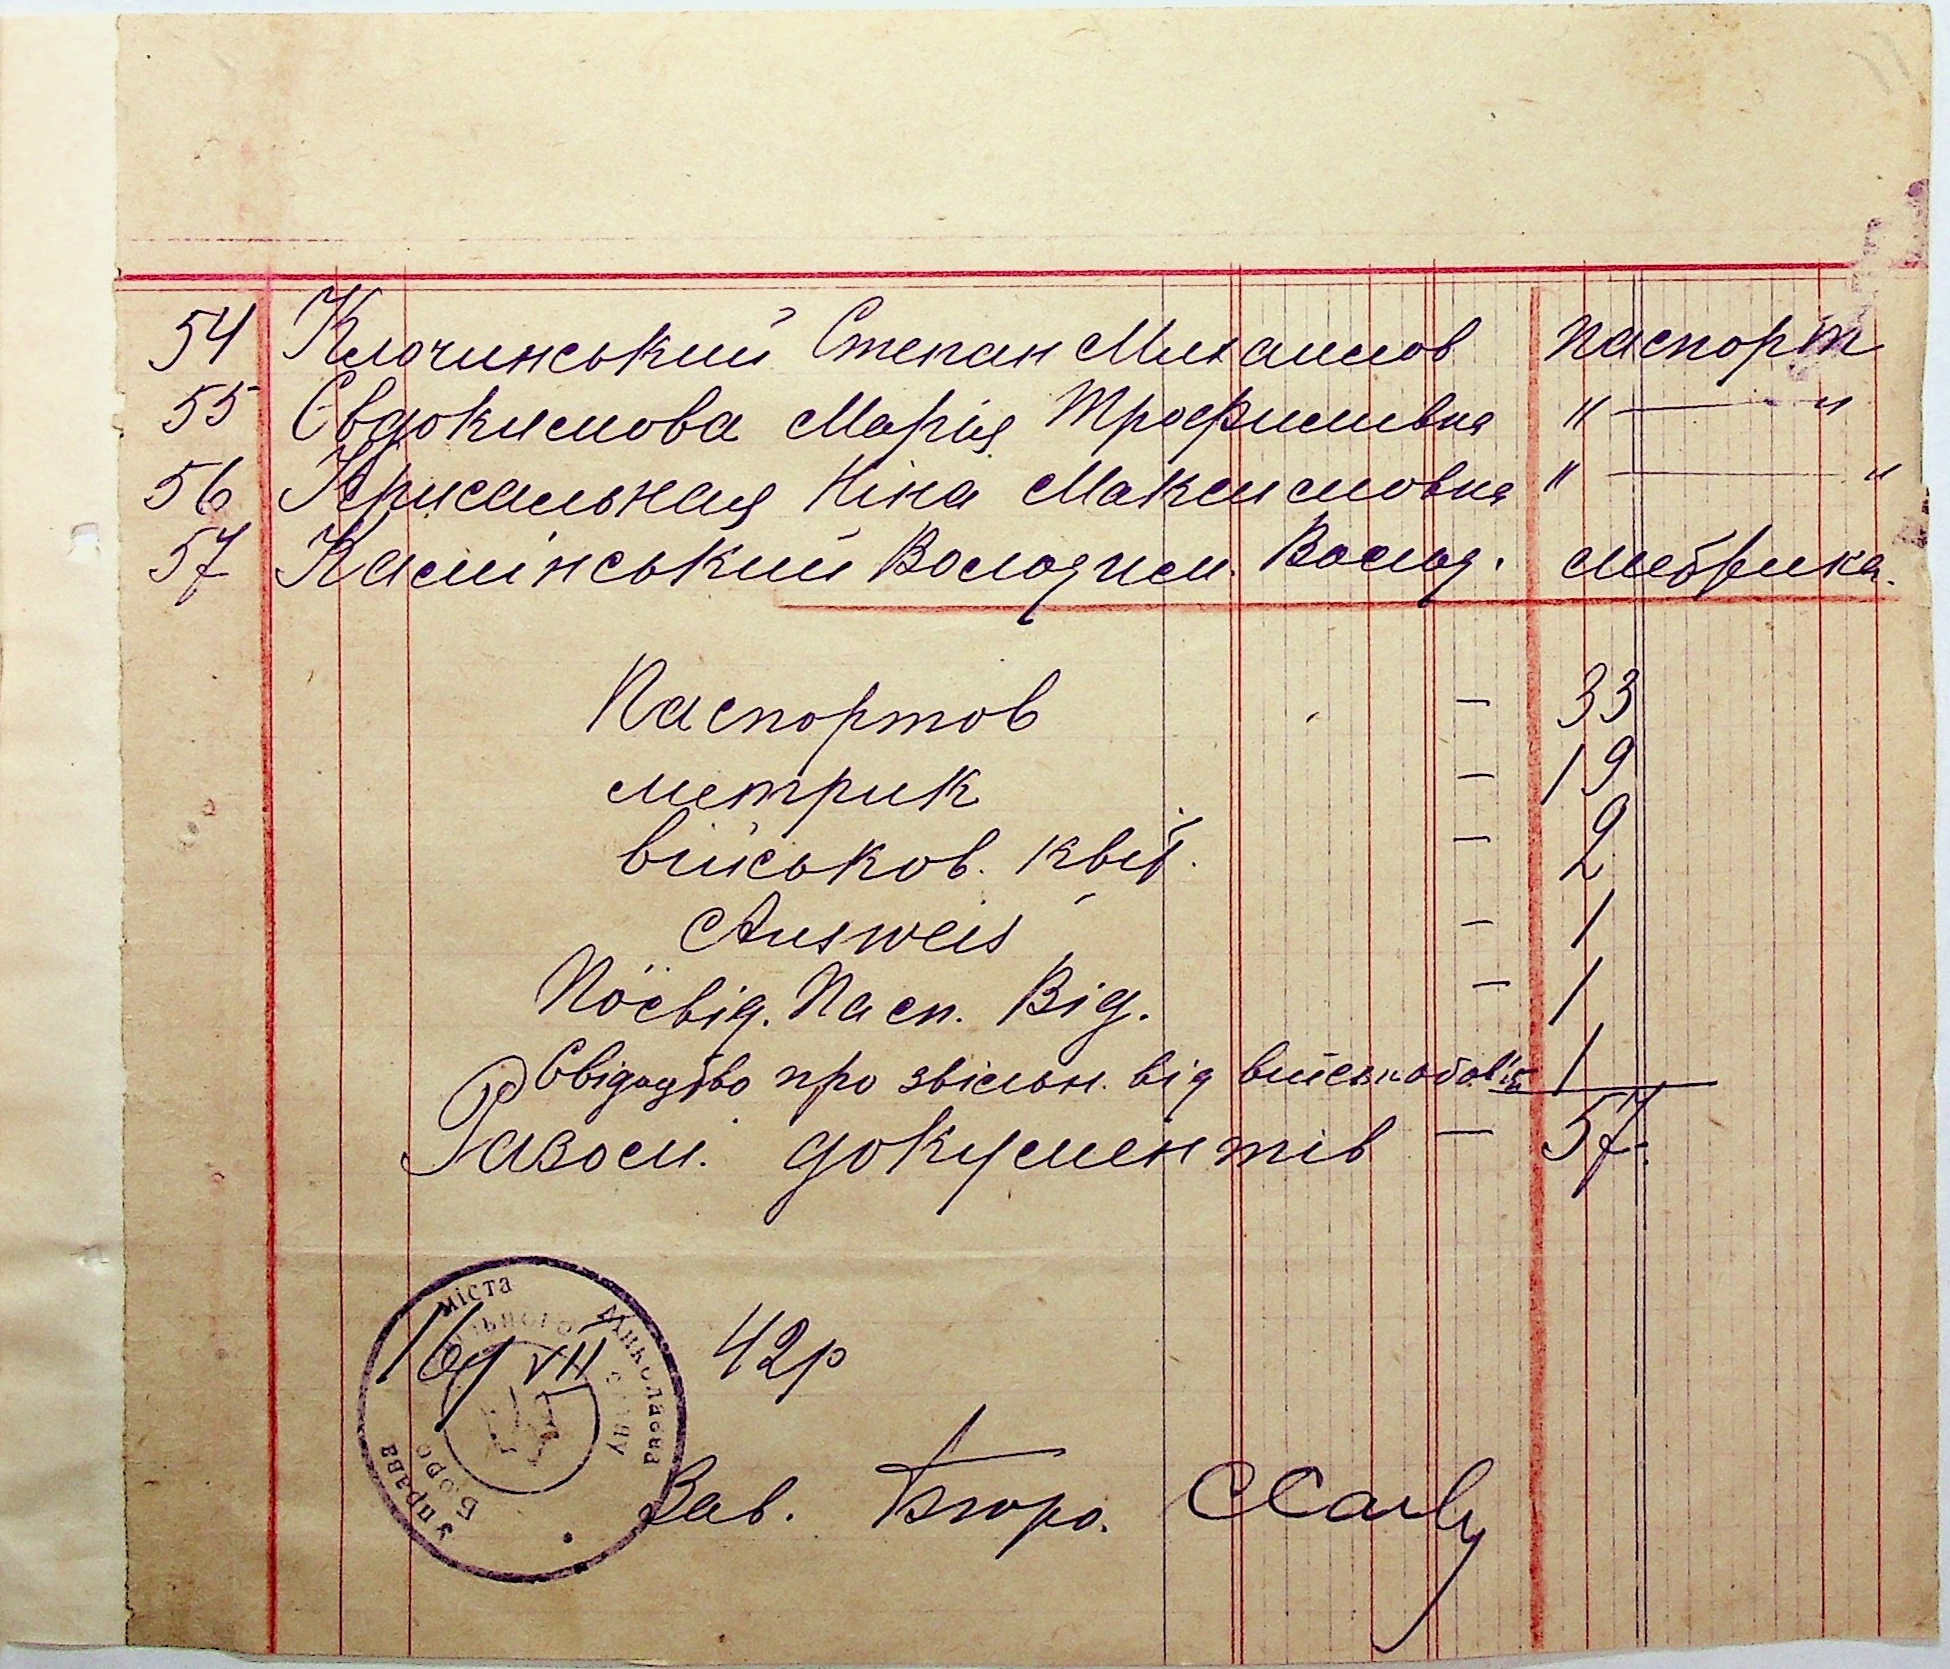 54 Клочинський Степан Михаилов паспорт
55 Євдокимова Марія Трофимивна " — "
56 Крисальная Ніна Максимовна " — "
57 Камінський Володим. Волод. метрика.
Паспортов — 33
метрик — 19
військов. квит. — 2
Ausweis — 1
Посвід. Пасп. Від. — 1
Свідоцтво про звільн. від військобов'яз 1
Разом. документів — 57.
16/VII 42р
Управа міста Миколаєва
Бюро стану
Зав. Бюро.